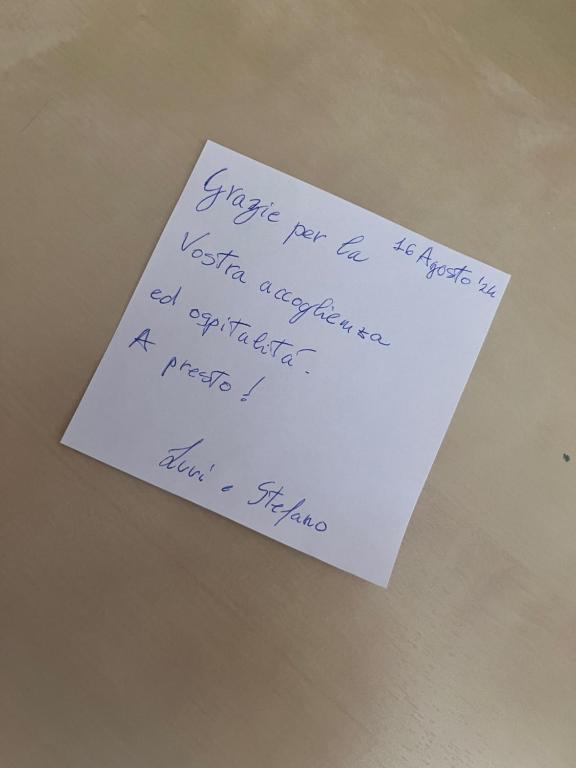 16 Agosto '24
Grazie per la
Vostra accoglienza
ed ospitalitá.
A presto!
e Stefano